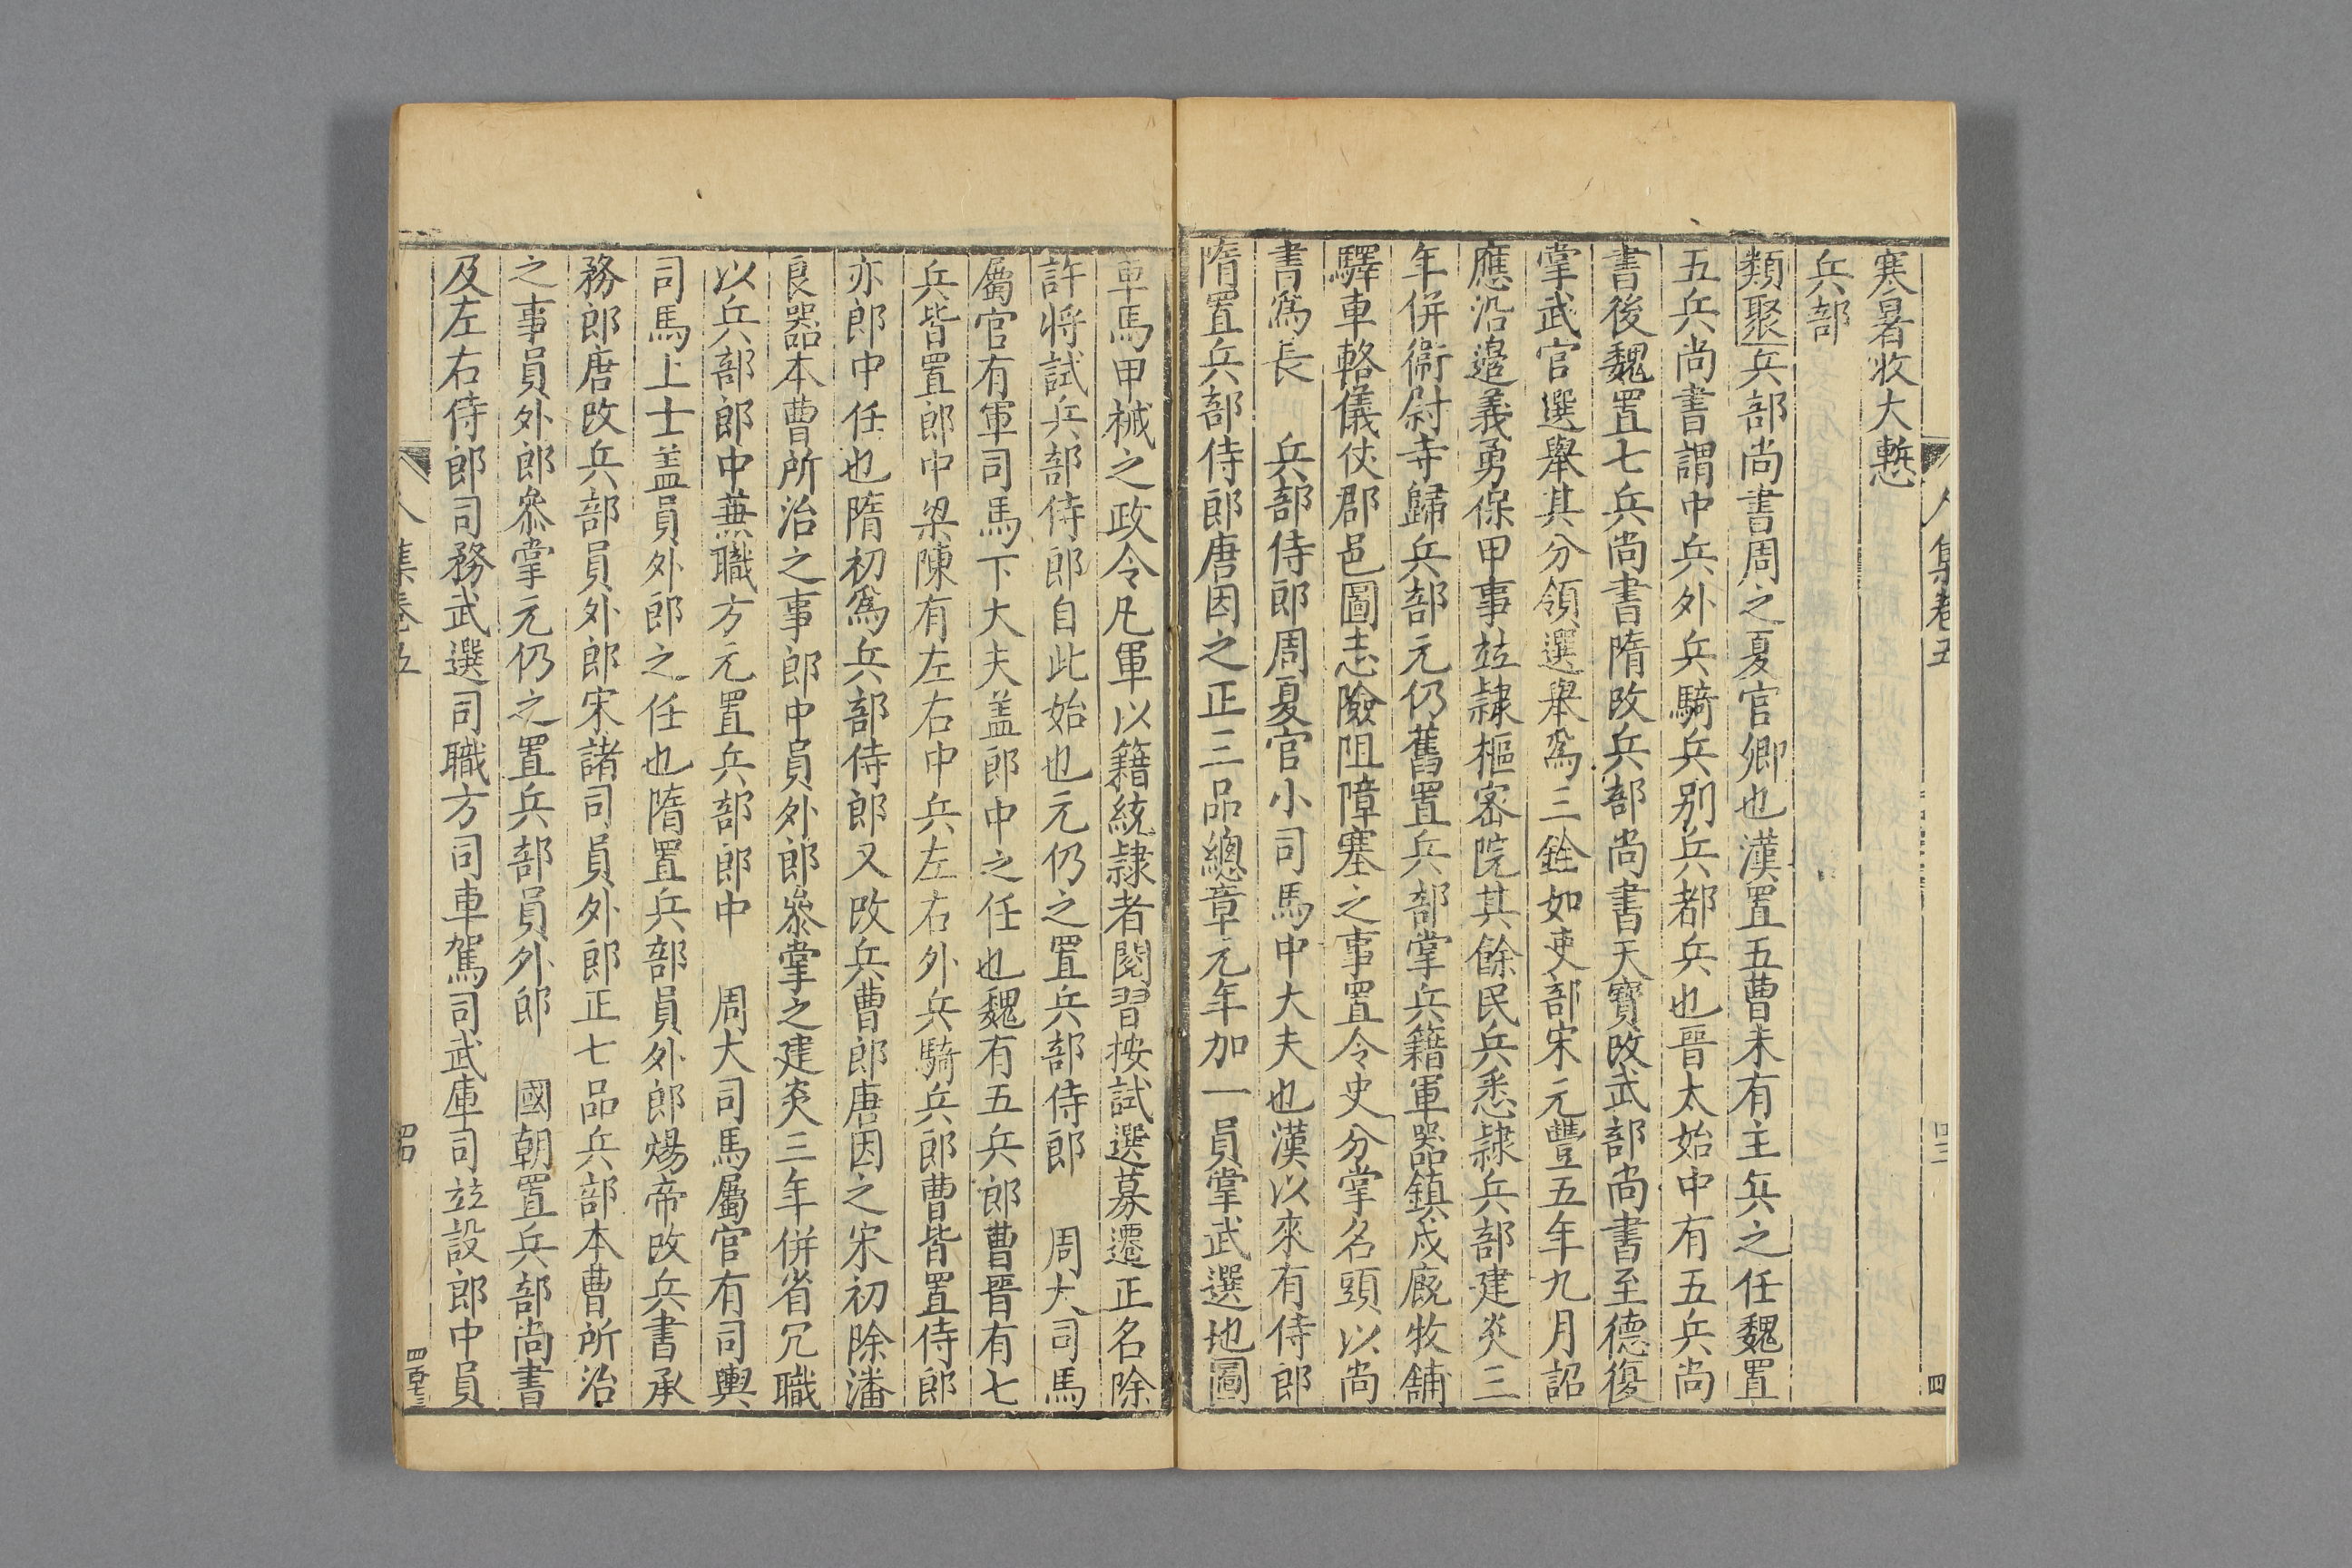 寒暑收大慙
兵部
類聚兵部尚書周之夏官卿也漢置五曹未有主兵之任魏置
五兵尚書謂中兵外兵騎兵别兵都兵也晉太始中有五兵尚
書後魏置七兵尚書隋改兵部尚書天寶改武部尚書至德復
掌武官選舉其分領選舉爲三銓如吏部宋元豐五年九月詔
應沿邉義勇保甲事竝隷樞密院其餘民兵悉隷兵部建炎三
年併衞尉寺歸兵部元仍舊置兵部掌兵籍軍器鎮戍廐牧舖
驛車輅儀仗郡邑圖志險阻障塞之事置令史分掌名頭以尚
書爲長　兵部侍郎周夏官小司馬中大夫也漢以來有侍郎
隋置兵部侍郎唐因之正三品總章元年加一員掌武選地圖
車馬甲械之政令凡軍以籍統隷者閱習按試選募遷正名除
許將試兵部侍郎自此始也元仍之置兵部侍郎　周大司馬
屬官有軍司馬下大夫盖郎中之任也魏有五兵郎曹晉有七
兵皆置郎中梁陳有左右中兵左右外兵騎兵郎曹皆置侍郎
亦郎中任也隋初爲兵部侍郎又改兵曹郎唐因之宋初除潘
良器本曹所治之事郎中員外郎叅掌之建炎三年併省冗職
以兵部郎中兼職方元置兵部郎中　周大司馬屬官有司輿
司馬上士盖員外郎之任也隋置兵部員外郎煬帝改兵書承
務郎唐改兵部員外郎宋諸司員外郎正七品兵部本曹所治
之事員外郎叅掌元仍之置兵部員外郎　國朝置兵部尚書
及左右侍郎司務武選司職方司車駕司武庫司竝設郎中員
集卷五